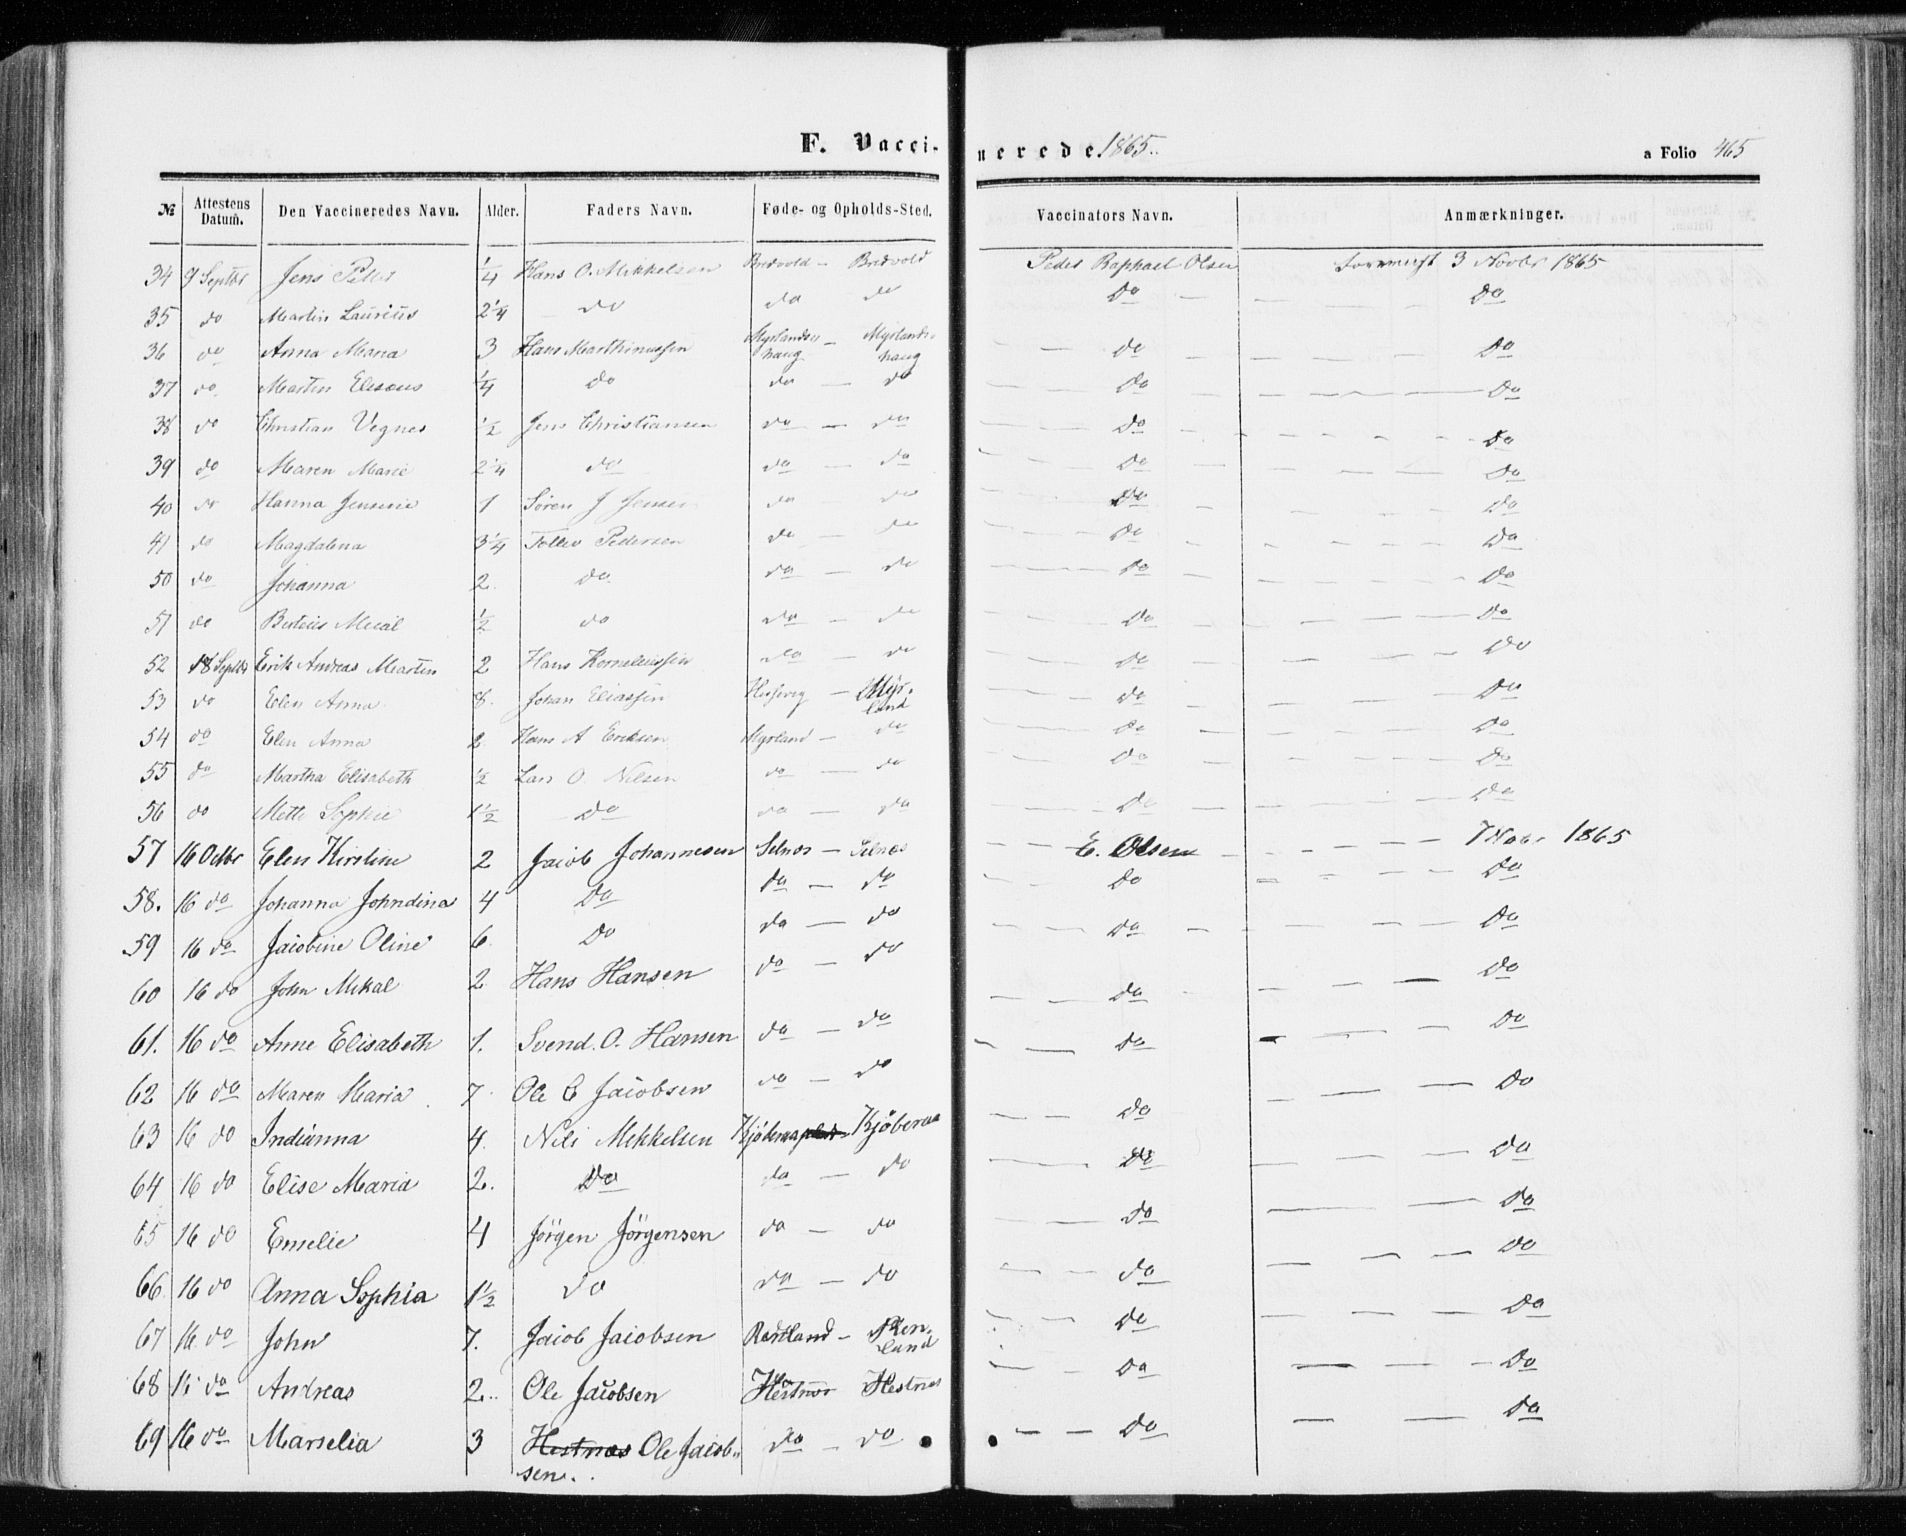 F. Vaccinerede 1865. a Folio 465
№ Attestens Datum. Den Vaccineredes Navn. Alder. Faders Navn. Føde- og Opholds-Sted. Vaccinators Navn. Anmærkninger.
34 9 Septbr Jens Peder ¼ Hans O. Mikkelsen Bredvold - Bredvold Peder Raphael Olsen 3 Novbr 1865
35 do Martin Laurius 2¼ do do do Do - - - - Do
36 do Anna Maria 3 Hans Marthinussen Myrlandshaug - Myrlandshaug - - do - - - Do
37 do Martin Eliseus ¼ do do - do - - Do - - - Do
38 do Christian Vegnes ½ Jens Christiansen do - do - - Do - - - - Do
39 do Maren Marie 2¼ do do - do - - Do - - - Do
40 do Hanna Jensine 1 Søren J Jensen do - do - - Do - - - Do
41 do Magdalena 3¼ Tollev Pedersen do - do - - Do - - - Do
50 do Johanna 2 do do - do - - do - - - Do
51 do Berteus Mecal ½ do do - do - - Do - - - Do
52 18 Septbr Erik Andreas Martin 2 Hans Korneliussen do - do - - do - - - Do
53 do Elen Anna 8. Johan Eliassen - Myrland - - do - - - Do
54 do Elen Anna 2 Hans A Eriksen Myrland - do - - do - - - Do
55 do Martha Elisabeth ½ Lars O. Nilsen do - do - - Do - - - Do
56 do Mette Sophie 1½ do do - do - - Do - - - Do
57 16 Octbr Elen Kirstine 2 Jacob Johannesen Selnæs - Selnæs - - E. Olsen - - - - 7 Nobr 1865
58. 16 do Johanna Johndina 4 Do do - do - - Do - - - Do
59 16 do Jacobine Oline 6. Do do - do - - Do - - - Do
60 16 do John Mikal 2 Hans Hansen do - do - - do - - - Do
61. 16 do Anne Elisabeth 1. Svend. O. Hansen do - do - - do - - - Do
62 16 do Maren Maria 7. Ole C Jacobsen do - do - - do - - - Do
63 16 do Indianna 4. Nils Mikkelsen Kjøberaa Kjøberaa - - do - - - Do
64 16 do Elise Maria 2. Do do - do - - do - - - Do
65 16 do Emelie 4 Jörgen Jörgensen do - do - - do - - - Do
66 16 do Anna Sophia 1½ Do do - do - - do - - - Do
67 16. do John 7. Jacob Jacobsen - - - Do - - - Do
68 16 do Andreas 2.. Ole Jacobsen Hestnæs Hestnæs - - Do - - - Do
69 16 do Marselia 3 Hestnæs Ole Jacob- do - do - - Do - - Do
sen.